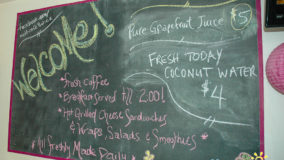 Welcome!
Pure Grapefruit Juice $5
FRESH TODAY
COCONUT WATER
$4
* Fresh Coffee
* Breakfast served till 2:00!
* Hot Grilled Cheese Sandwiches
& Wraps, Salads & Smoothies *
All freshly Made Daily